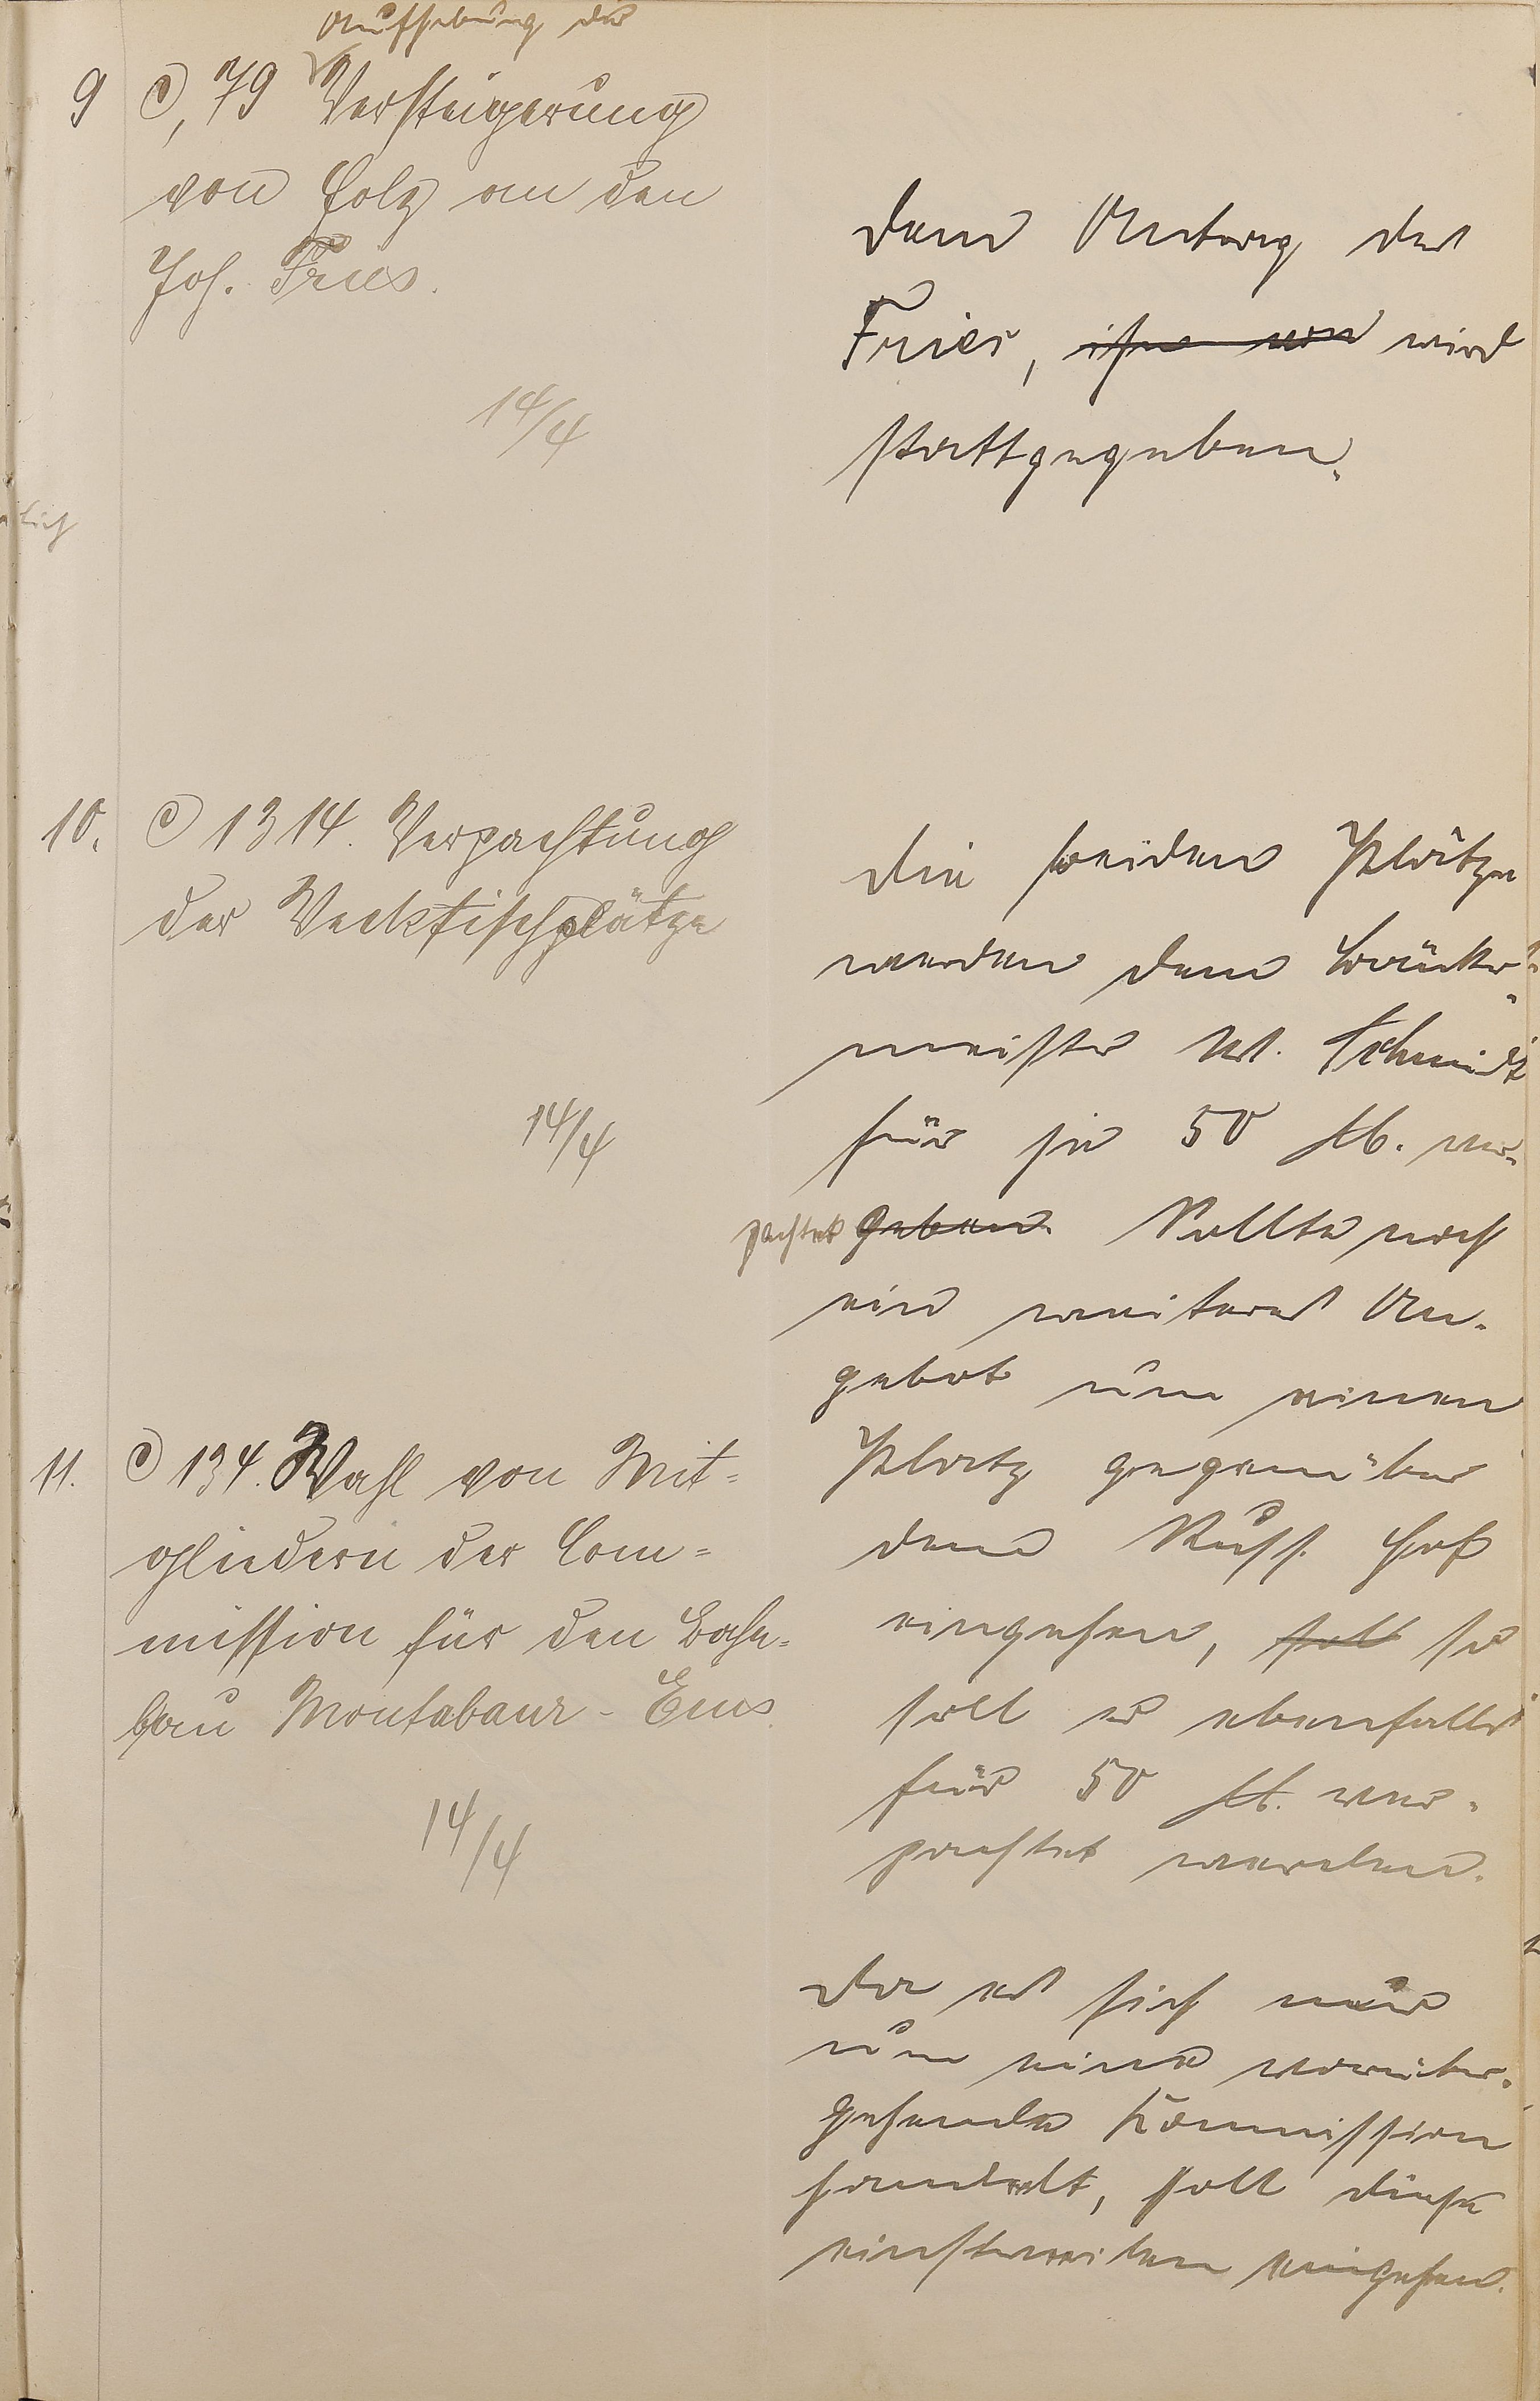 Aufhebung der
9 C, 79 Versteigerung
von Holz an den
Joh. Fries.
14/4
Dem Antrag des
Fries, ihn von wird
stattgegeben.
10. C 1314. Verpachtung
der Wecktischplätze
14/4
Die beiden Plätze
werden dem Bäcker-
meister W. Schmidt
für je 50 M. ver-
pachtet geben. Sollte noch
ein weiteres An-
gebot um einen
Platz gegenüber
dem Russ. Hof
eingehen, soll so
soll er ebenfalls
für 50 M. ver-
pachtet werden.
11. C 134. Wahl von Mit-
gliedern der Com-
mission für den Bahn-
bau Montabaur - Ems
14/4
Da es sich nur
um eine vorüber-
gehende Kommission
handelt, soll diese
einstweilen eingehen.